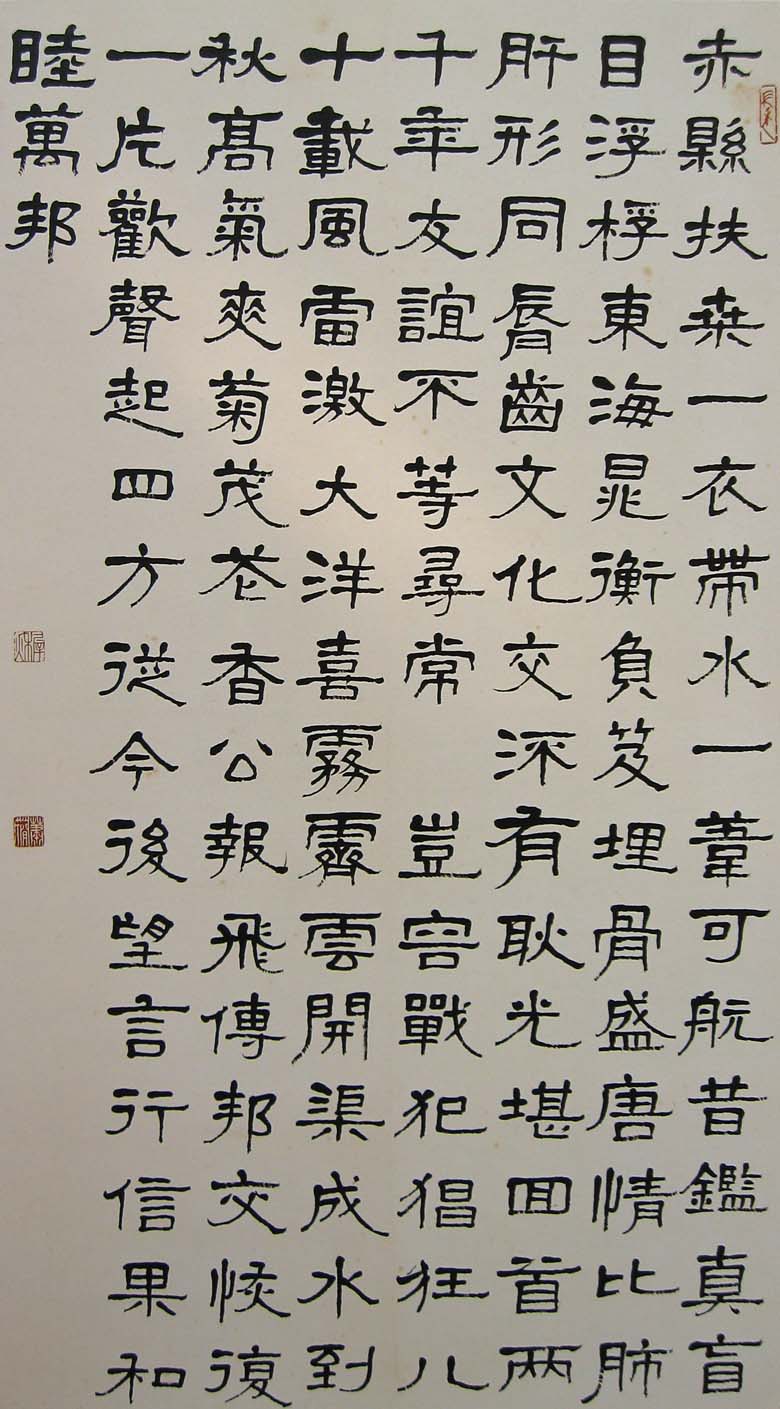 赤縣扶桑一衣帶水一葦可航昔鑑真盲
目浮桴東海晁衡負笈埋骨盛唐情比肺
肝形同脣齒文化交流有耿光堪回首兩
千年友誼不等尋常 豈容戰犯猖狂八
十載風雷激大洋喜霧霽雲開渠成水到
秋高氣爽菊茂花香公報飛傳邦交恢復
一片歡聲起四方從今後望言行信果和
睦萬邦